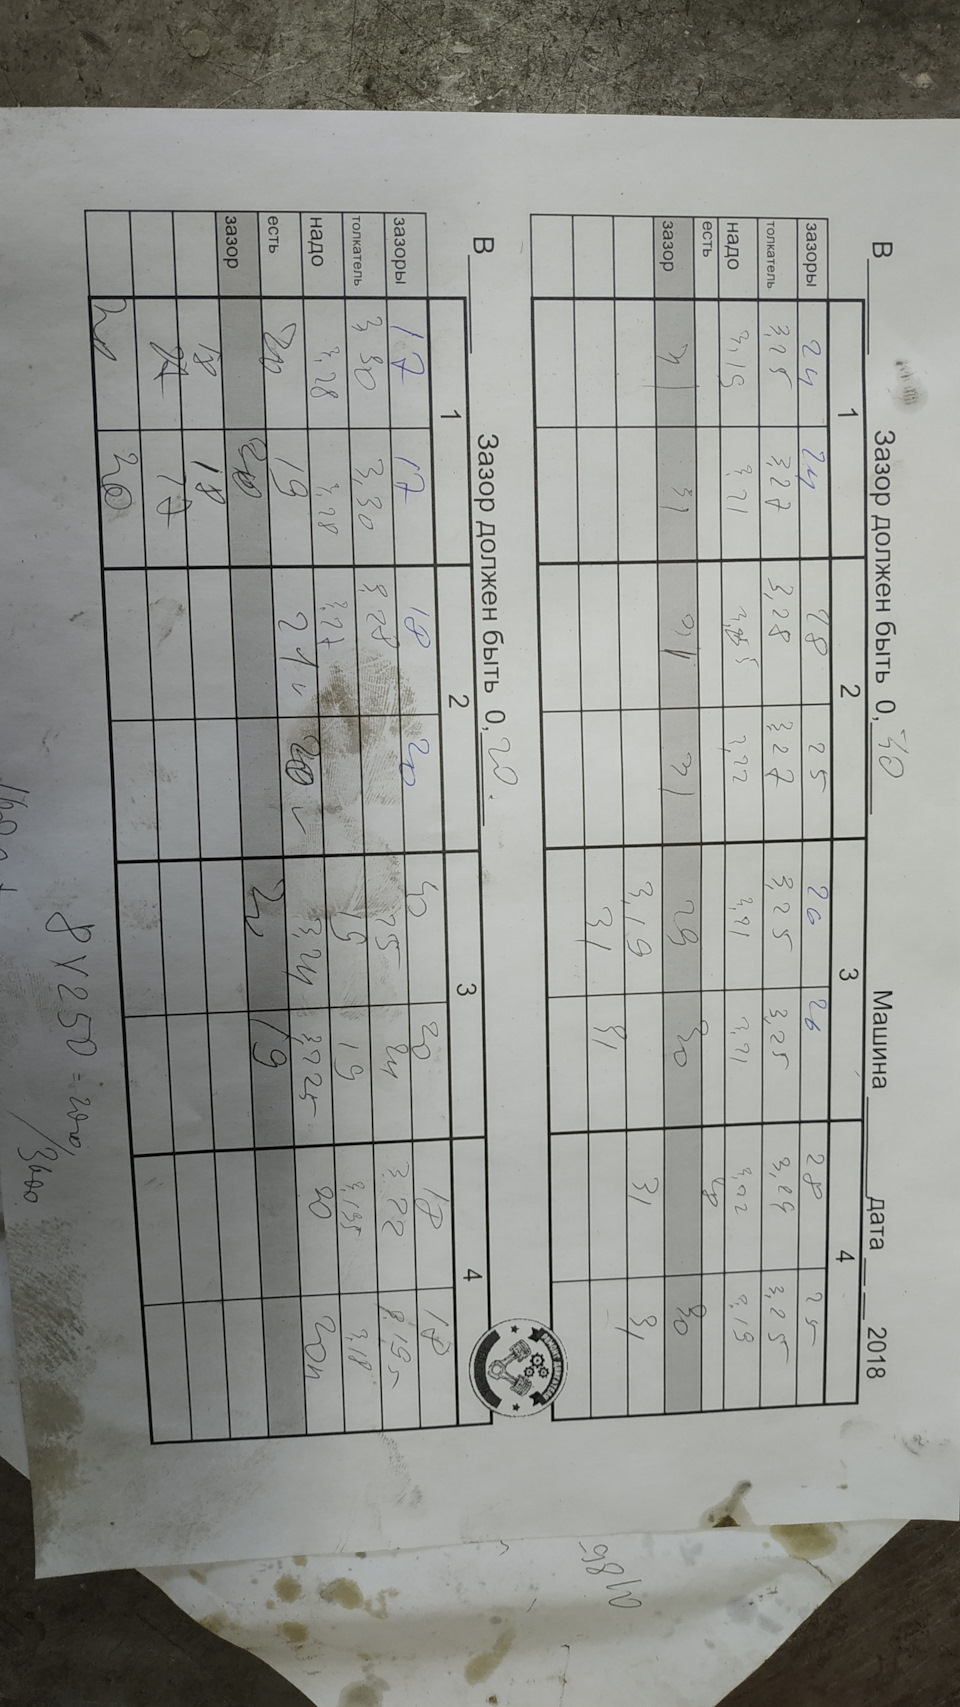 В Зазор должен быть 0,30 Машина дата 2018
1 2 3 4
зазоры 24 24 28 25 26 26 28 25
толкатель 3,25 3,27 3,28 3,27 3,25 3,25 3,29 3,25
надо 3,19 3,21 3,22 3,21 3,21 3,22 3,19
есть
зазор 31 31 31 31 29 30 30
3,19 31 31
31 31
В Зазор должен быть 0,20.
1 2 3 4
зазоры 17 17 18 20 30 30 18 18
толкатель 3,30 3,30 3,28 25 3,22
надо 3,28 3,28 3,27 19 19 3,195 3,18
есть 20 19 21 20 3,24 3,225 20
зазор 20 19
18 18
17
20 20
8 X 250 = 2000/3600
M86